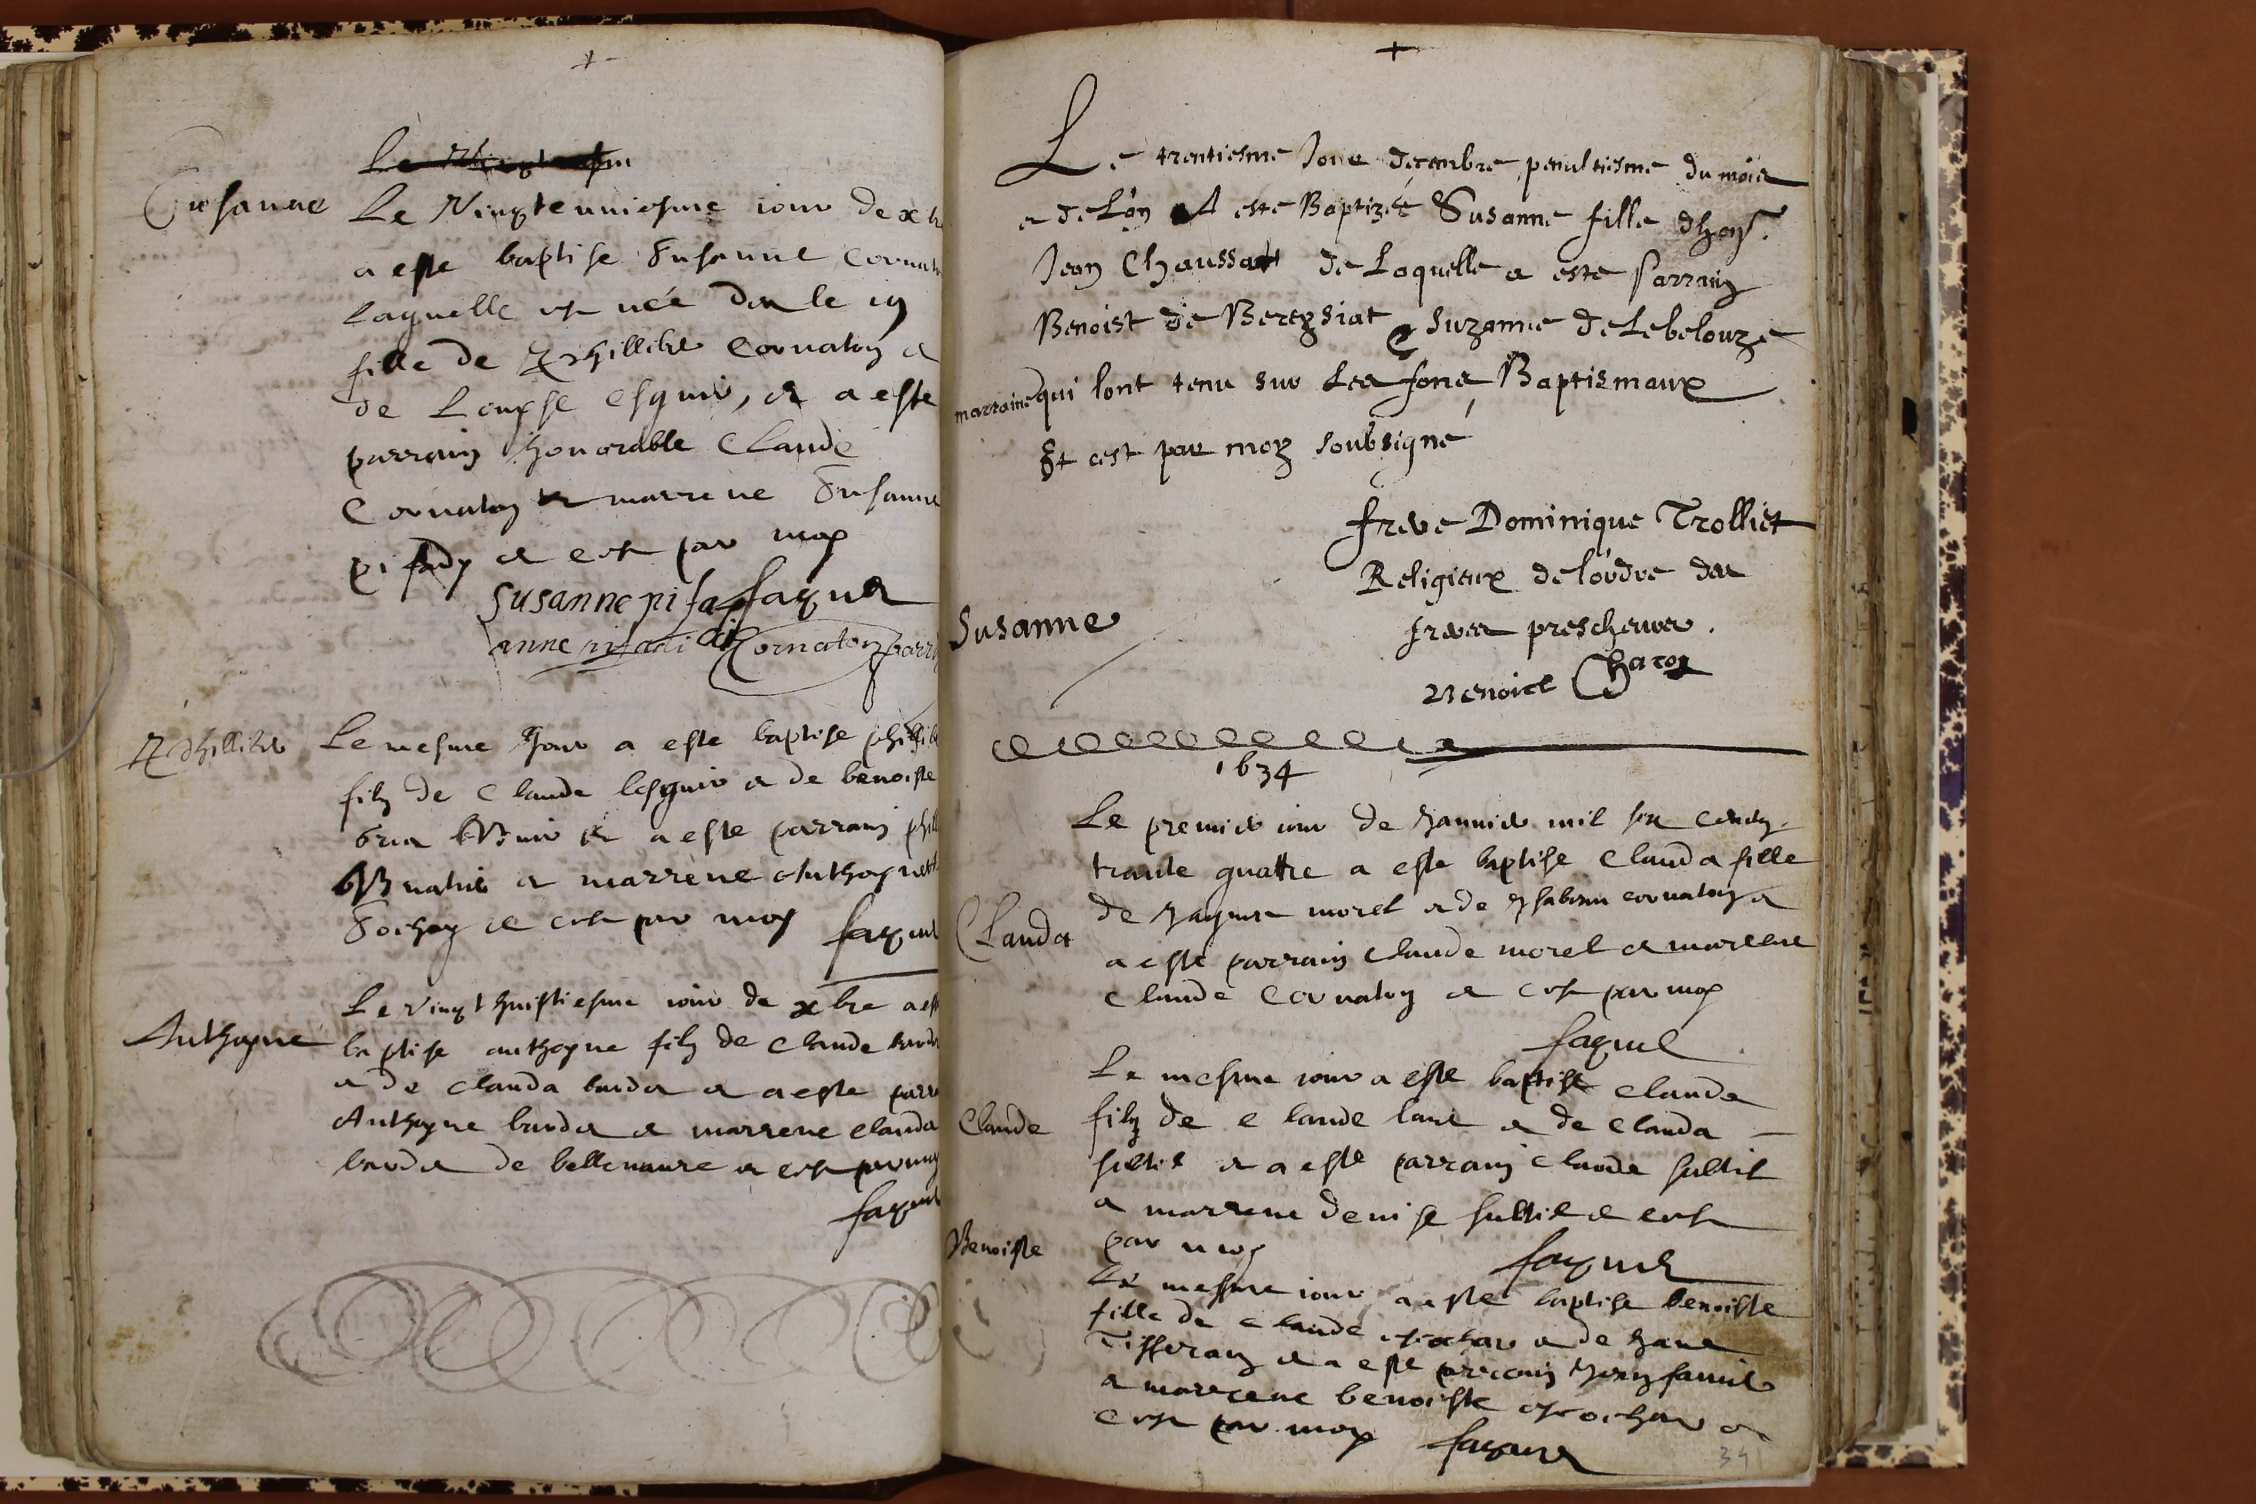 Susanne
Le Vingteuniesme iour de xbre
a este baptise Susanne Cornaton
laquelle est née du le 19
fille de Phillibe Cornaton et
de Loupse esguir, et a este
parrain honorable Claude
Cornaton et marrene Susanne
pisady et est par moy
Susanne pisa Faquet
anne pisadi Cornaton parr
Phillibe
Le mesme Jour a este baptise phillib
filz de Claude lesguir et de benoiste
et a este parrain phill
et marrene Anthoynett
et est par moy Faquet
Anthoyne
Le vingt huistiesme iour de xbre a est
baptise anthoyne filz de Claude
et de Clauda burda et a este parr
Anthoyne burda et marrene Clauda
burda de bellenaure et est par moy
Faquet
Le trentiesme Jour decembre penultiesme du mois
et de Lan A este Baptizée Susanne fille dhon.
Jean Chaussat de Laquelle a este Parrain
Benoist de Bereysiat & Suzanne de Lebelouze
marraine qui lont tenu sur Les fons Baptismaux
Et cest par moy soubsigné
frere Dominique Trolliet
Religieux de lordre des
freres prescheurs.
Susanne
Benoict Charon
1634
Clauda
Le premier iour de Januier mil six centz
trante quattre a este baptise Clauda fille
de Jaques morel et de Ysabeau cornaton et
a este parrain Claude morel et marrene
Claude Cornaton et est par moy
Faquet
Claude
Le mesme iour a este baptise Claude
filz de Claude et de Clauda
subtil et a este parrain Claude subtil
et marrene denise subtil et est
par moy Faquet
Benoiste
Le mesme iour a este baptise benoiste
fille de Claude et de Jane
Tisseran et a este parrain
et marrene benoiste et
est par moy Faquet
341